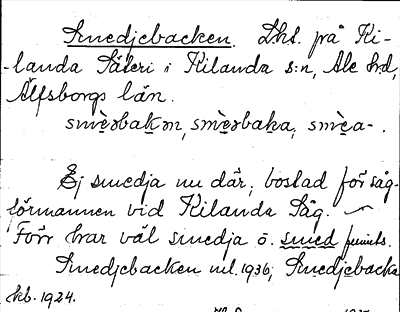 Smedjebacken. Lht. på Ki-
-landa Säteri i Kilanda s:n, Ale hd,
Älfsborgs län.
smèəbakən, smèəbaka, smèa-.
Ej smedja nu där, bostad för såg-
förmannen vid Kilanda Såg.
Förr har väl smedja o. smed funnits.
Smedjebacken ml. 1936, Smedjebacka
kb. 1924.